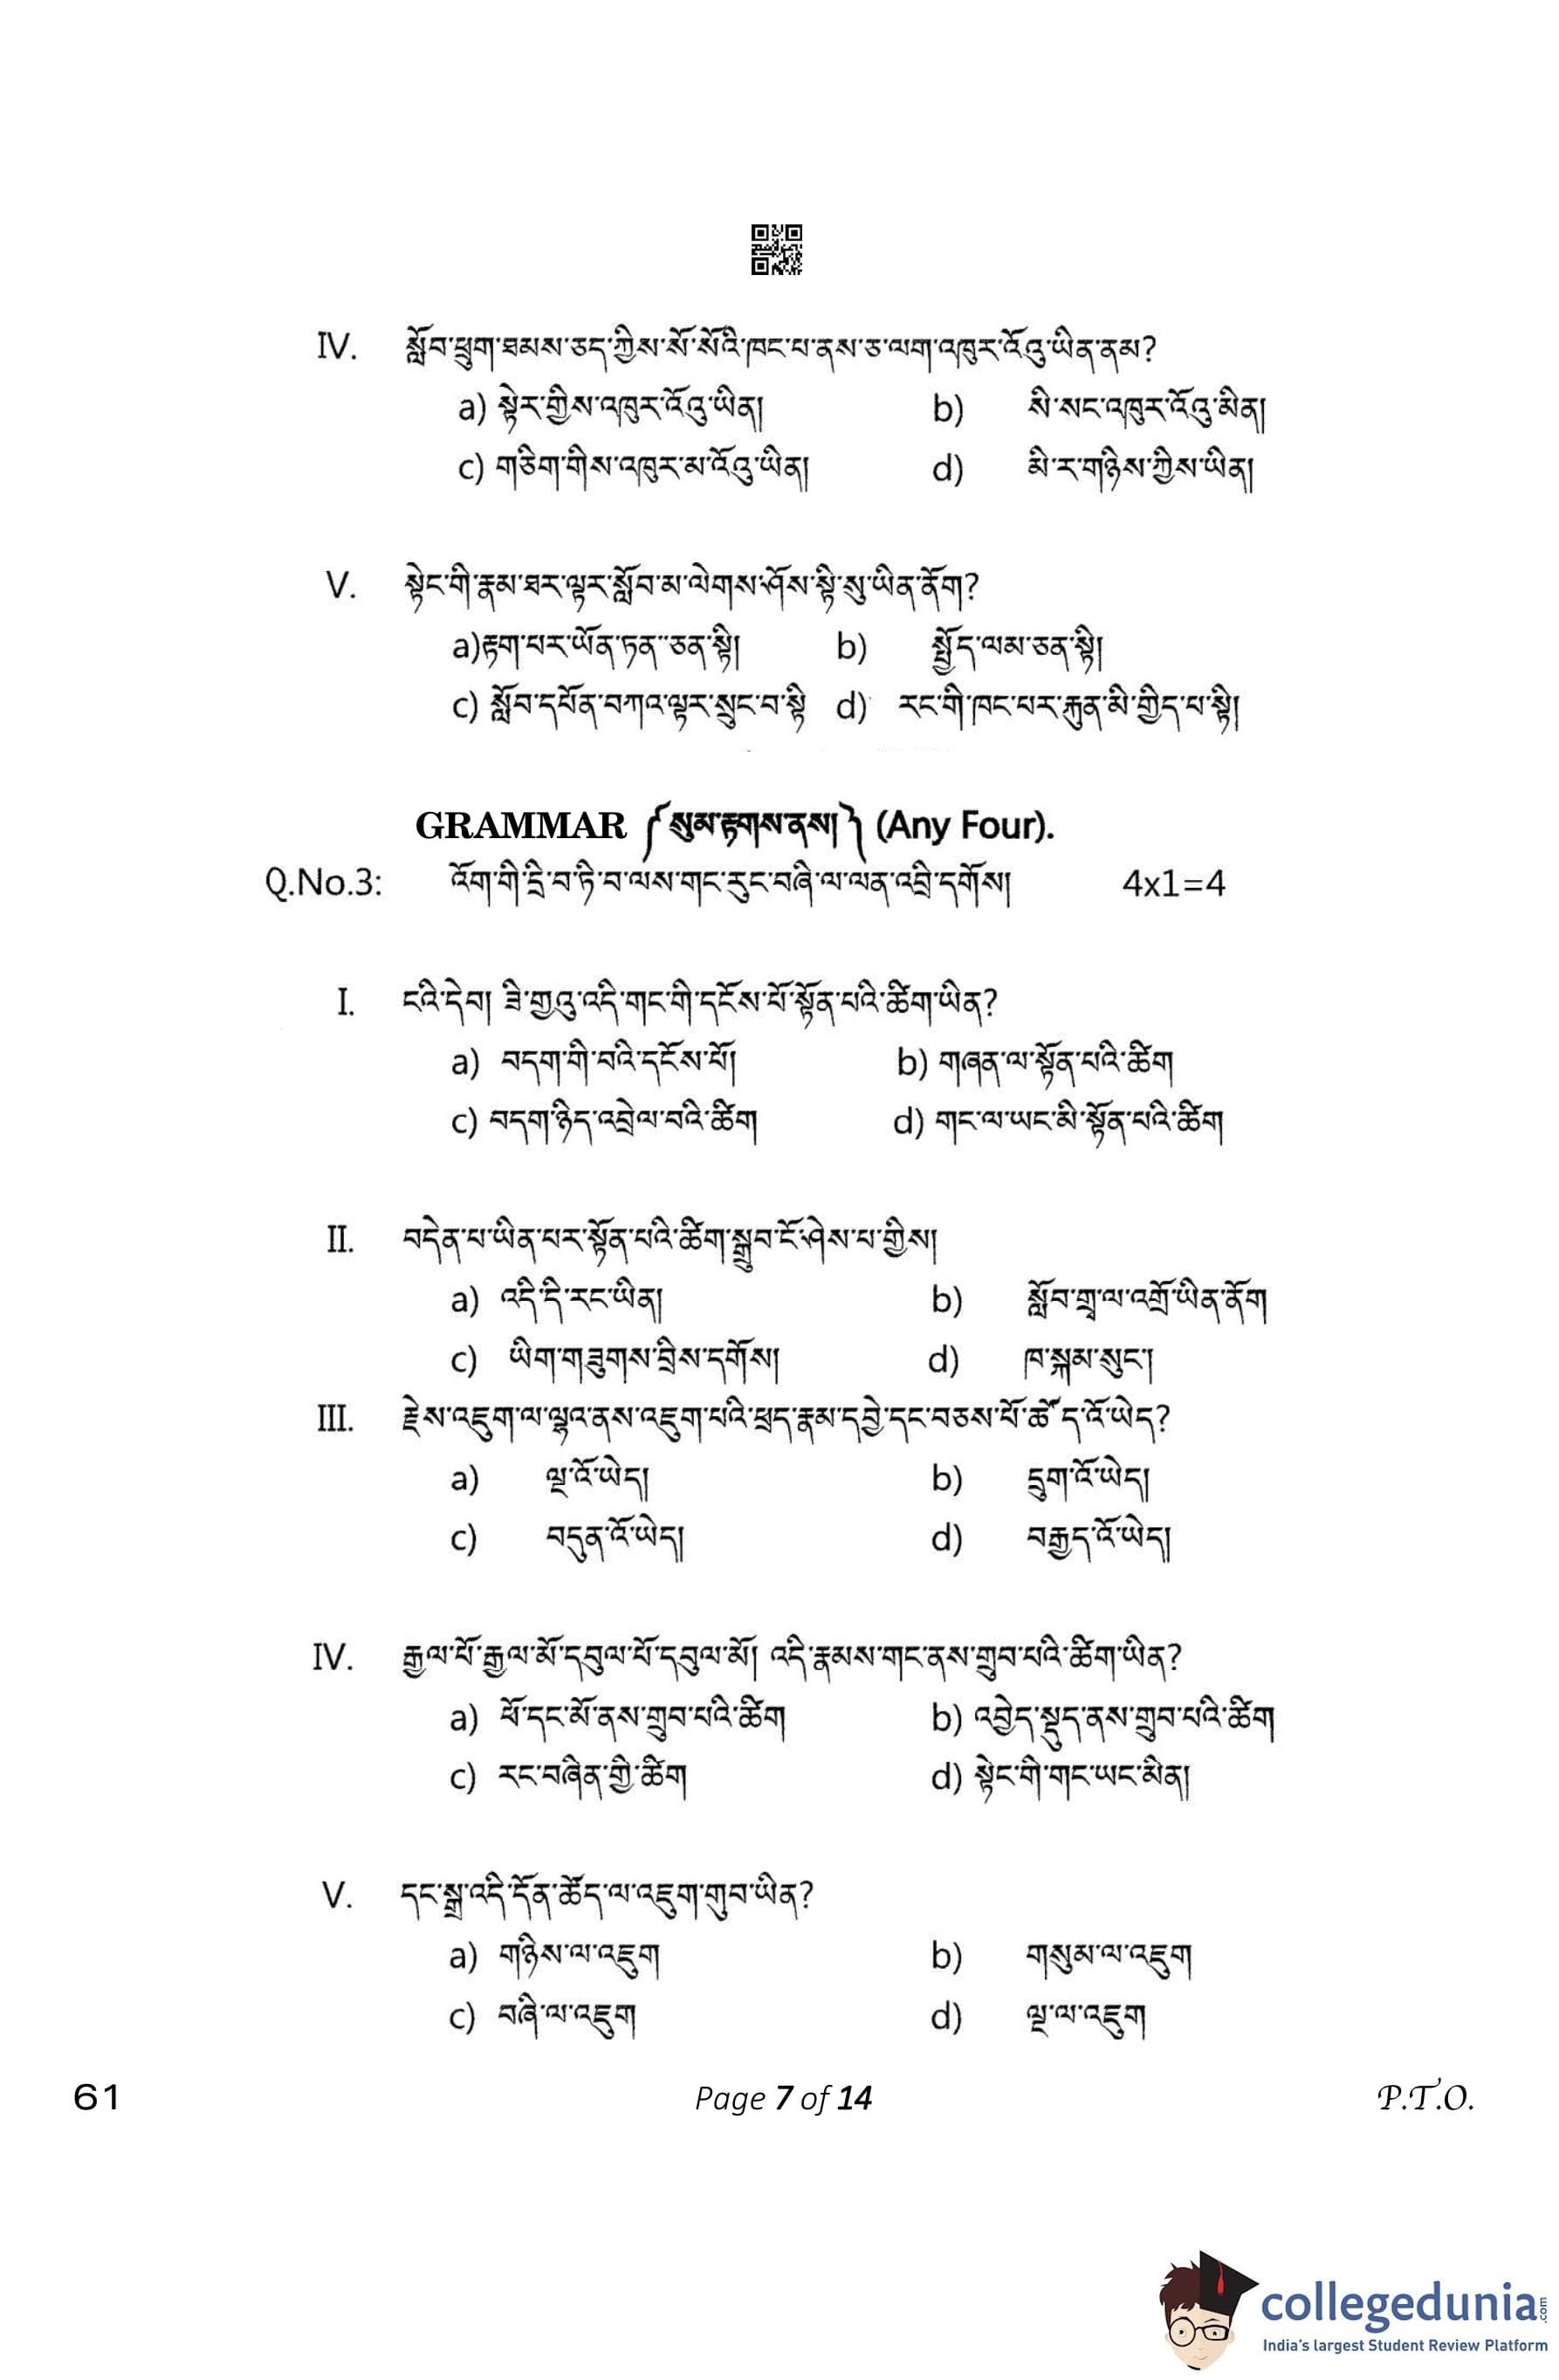 IV. སློབ་ཕྲུག་ཐམས་ཅད་ཀྱིས་སོ་སོའི་ཁང་པ་ནས་ཅ་ལག་འཁུར་འོའུ་ཡིན་ནམ?
a) སྟེར་གྱིས་འཁུར་འོའུ་ཡིན། b) སི་སང་འཁུར་འོའུ་མིན།
c) གཅིག་གིས་འཁུར་མ་འོའུ་ཡིན། d) མི་ར་གཉིས་ཀྱིས་ཡིན།
V. སྟེང་གི་རྣམ་ཐར་ལྟར་སློབ་མ་ལེགས་ཤོས་སྟི་སུ་ཡིན་ནོག?
a)རྟག་པར་ཡོན་ཏན་་ཅན་སྟི། b) སྤྱོད་ལམ་ཅན་སྟི།
c) སློབ་དཔོན་བཀའ་ལྟར་སྲུང་བ་སྟི d) རང་གི་ཁང་པར་རྐུན་མི་གྱིད་པ་སྟི།
GRAMMAR ༼སུམ་རྟགས་ནས།༽ (Any Four).
Q.No.3: འོག་གི་དྲི་བ་ཏི་བ་ལས་གང་རུང་བཞི་ལ་ལན་འབྲི་དགོས། 4x1=4
I. ངའི་དེབ། ཟི་གྱའུ་འདི་གང་གི་དངོས་པོ་སྟོན་པའི་ཚིག་ཡིན?
a) བདག་གི་བའི་དངོས་པོ། b) གཞན་ལ་སྟོན་པའི་ཚིག
c) བདག་ཉིད་འབྲེལ་བའི་ཚིག d) གང་ལ་ཡང་མི་སྟོན་པའི་ཚིག
II. བདེན་པ་ཡིན་པར་སྟོན་པའི་ཚིག་སྒྲུབ་ངོ་ཤེས་པ་གྱིས།
a) འདི་དི་རང་ཡིན། b) སློབ་གྲྭ་ལ་འགྲོ་ཡིན་ནོག
c) ཡིག་གཟུགས་བྲིས་དགོས། d) ཁ་སྐམ་སུང་།
III. རྗེས་འཇུག་ལ་ལྟའ་ནས་འཇུག་པའི་ཕྲད་རྣམ་དབྱེ་དང་བཅས་པོ་ཚོད་འོ་ཡེད?
a) ལྔ་འོ་ཡེད། b) དྲུག་འོ་ཡེད།
c) བདུན་འོ་ཡེད། d) བརྒྱད་འོ་ཡེད།
IV. རྒྱལ་པོ་རྒྱལ་མོ་དབུལ་པོ་དབུལ་མོ། འདི་རྣམས་གང་ནས་གྲུབ་པའི་ཚིག་ཡིན?
a) ཕོ་དང་མོ་ནས་གྲུབ་པའི་ཚིག b) འབྱེད་སྡུད་ནས་གྲུབ་པའི་ཚིག
c) རང་བཞིན་གྱི་ཚིག d) སྟེང་གི་གང་ཡང་མིན།
V. དང་སྒྲ་འདི་དོན་ཚོད་ལ་འཇུག་གུབ་ཡིན?
a) གཉིས་ལ་འཇུག b) གསུམ་ལ་འཇུག
c) བཞི་ལ་འཇུག d) ལྔ་ལ་འཇུག
61 Page 7 of 14 P.T.O.
collegedunia.com
India's largest Student Review Platform